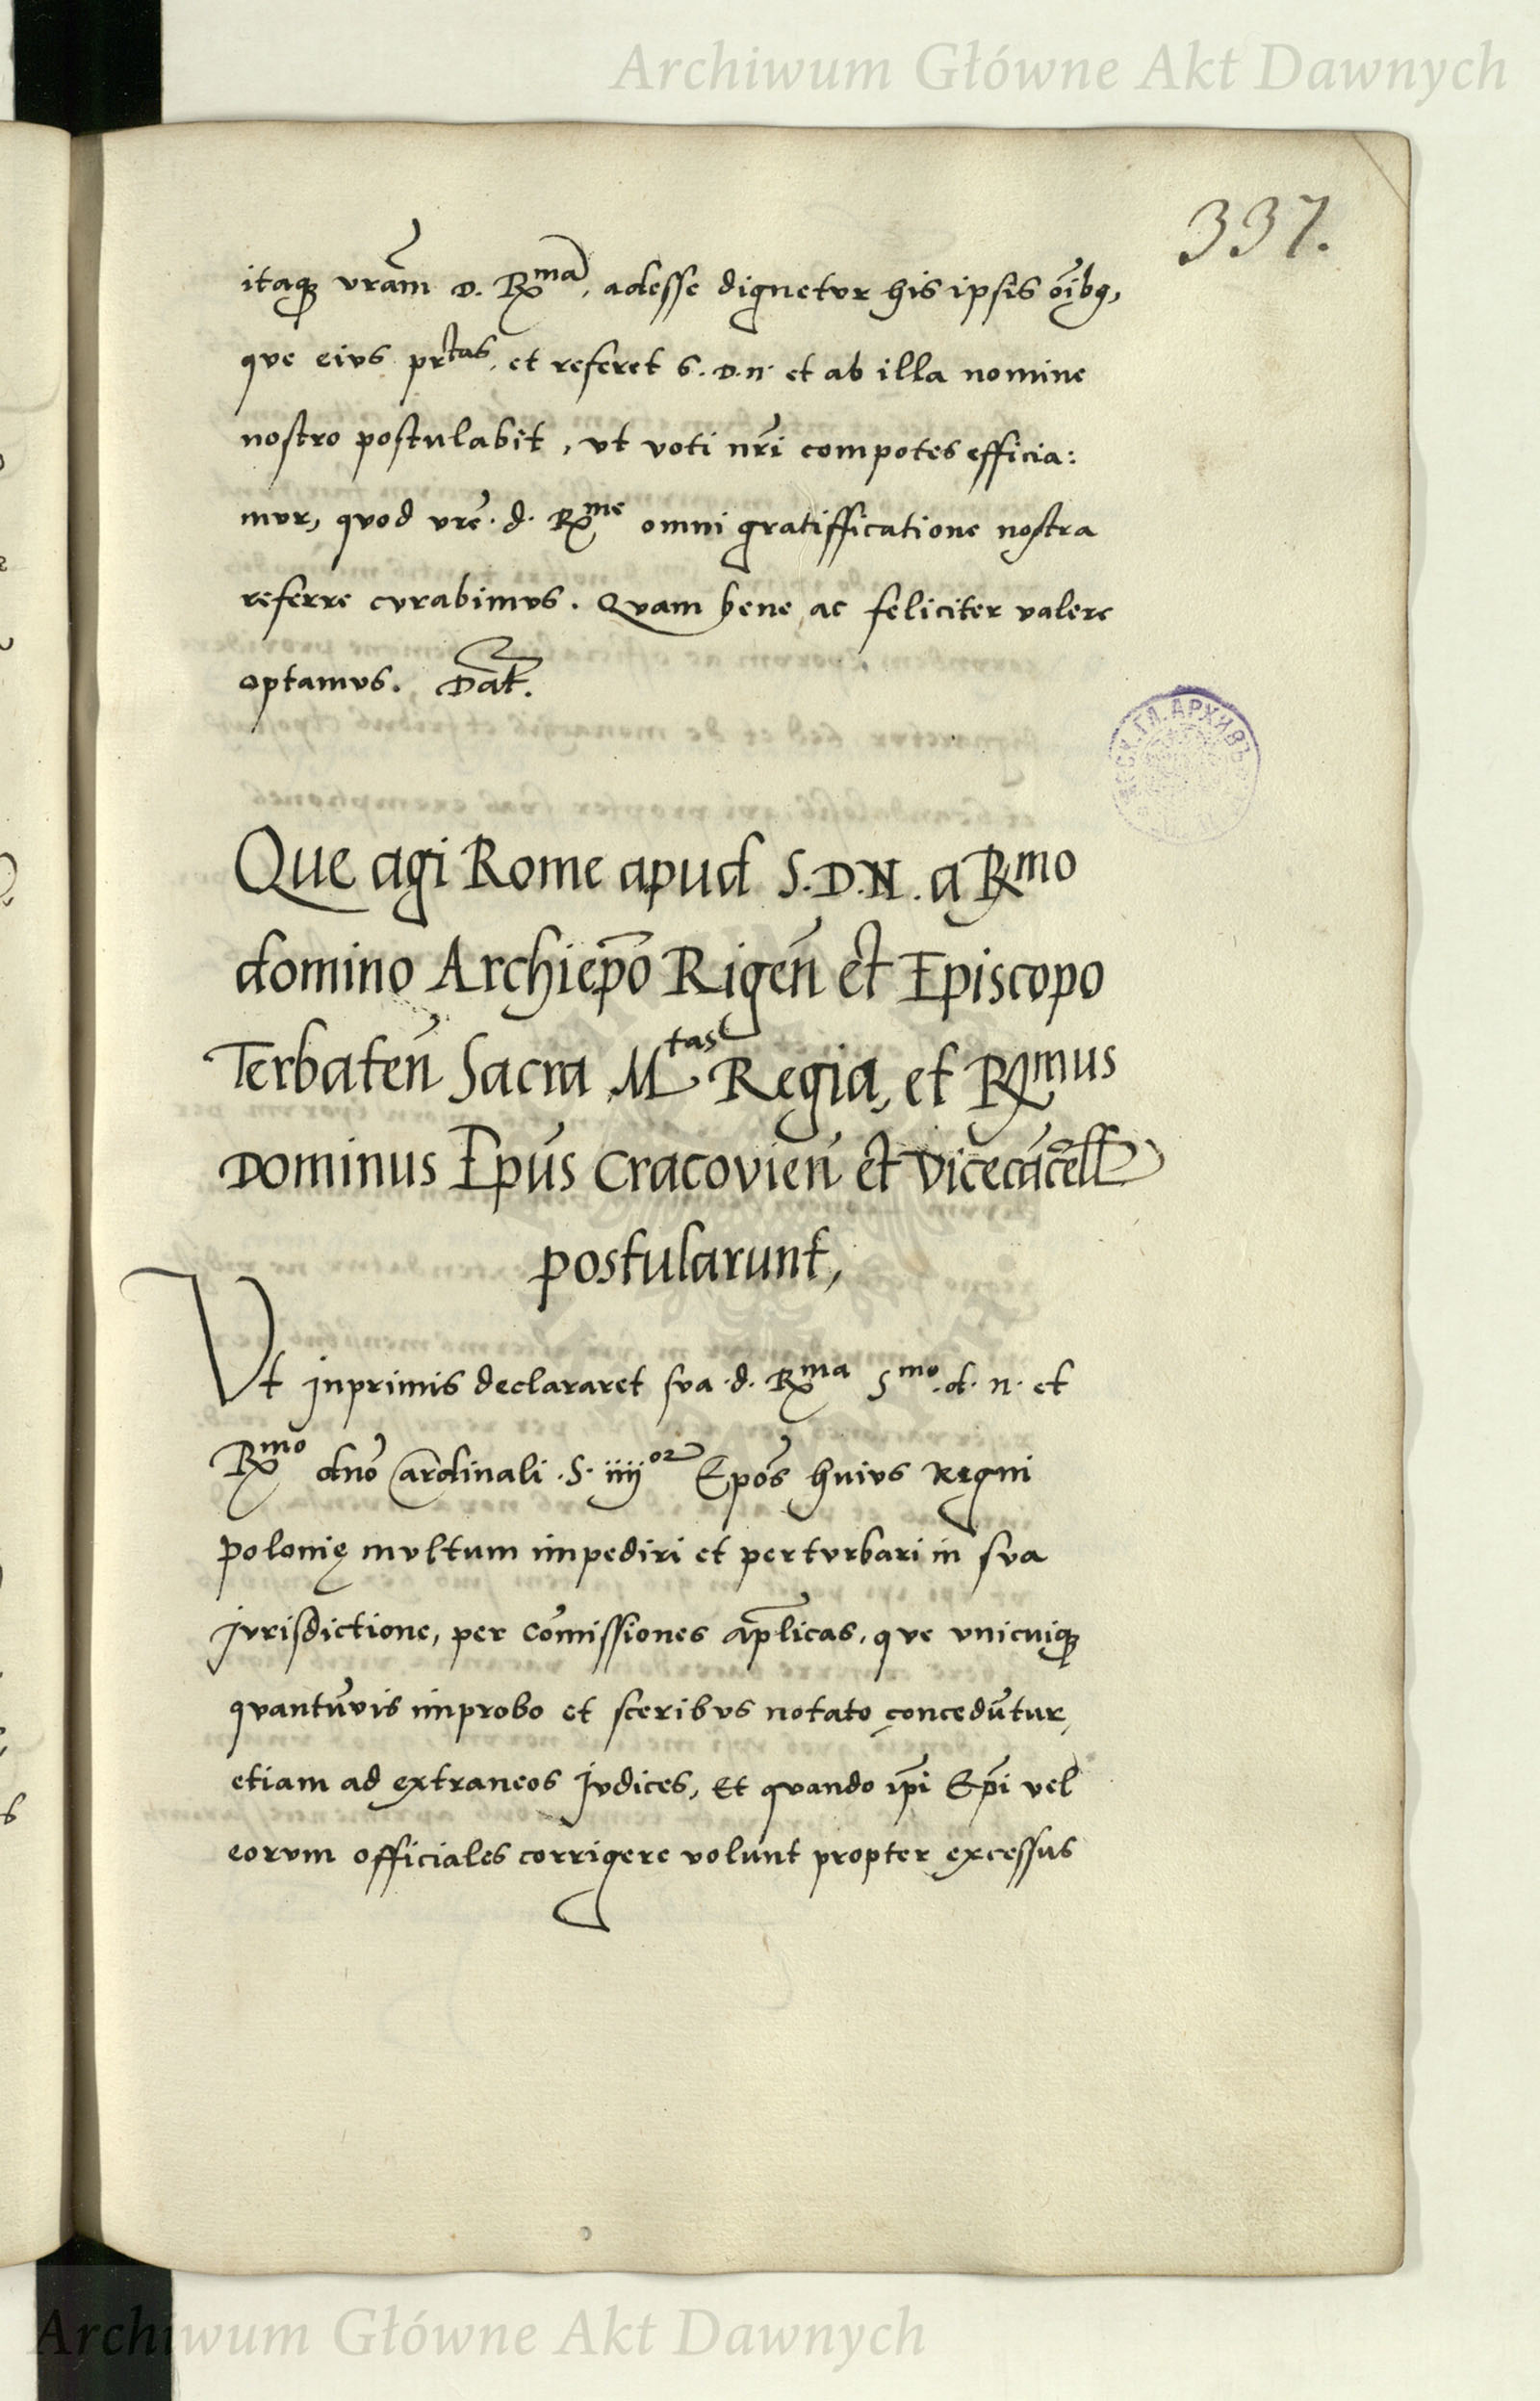 Archiwum Główne Akt Dawnych
337.
itaqꝫ vrãm D. Rx^ma, adesse dignetur his ipsis oı̃bq,
que eius pr̃tas, et referet S. D. n. et ab illa nomine
nostro postulabit, ut voti nr̃i compotes efficia:
mur, quod vrẽ. d. Rx^me omni gratifficatione nostra
referre curabimus. Quam bene, ac feliciter valere
optamus. Dat̃.
ГЛ. АРХИВЪ
Que agi Rome apud S. D. N. a Rx^mo
domino Archiep̃o Rigeñ et Episcopo
Terbateñ Sacra M^tas Regia, et Rx^mus
Dominus Ep̃us Cracovieñ et Vicecãcell
postularunt,
Vt inprimis declararet sua d. Rx^ma S^mo. d. n. et
Rx^mo dnõ Cardinali S. iiij^or Ep̃os huius Regni
Polonię multum impediri et perturbari in sua
Jurisdictione, per Cõmissiones ap̃licas, que unicuiqꝫ
quantũvis improbo et sceribus notato concedũtur,
etiam ad extraneos Judices, Et quando ip̃i Ep̃i vel
eorum officiales corrigere volunt propter excessus
Archiwum Główne Akt Dawnych